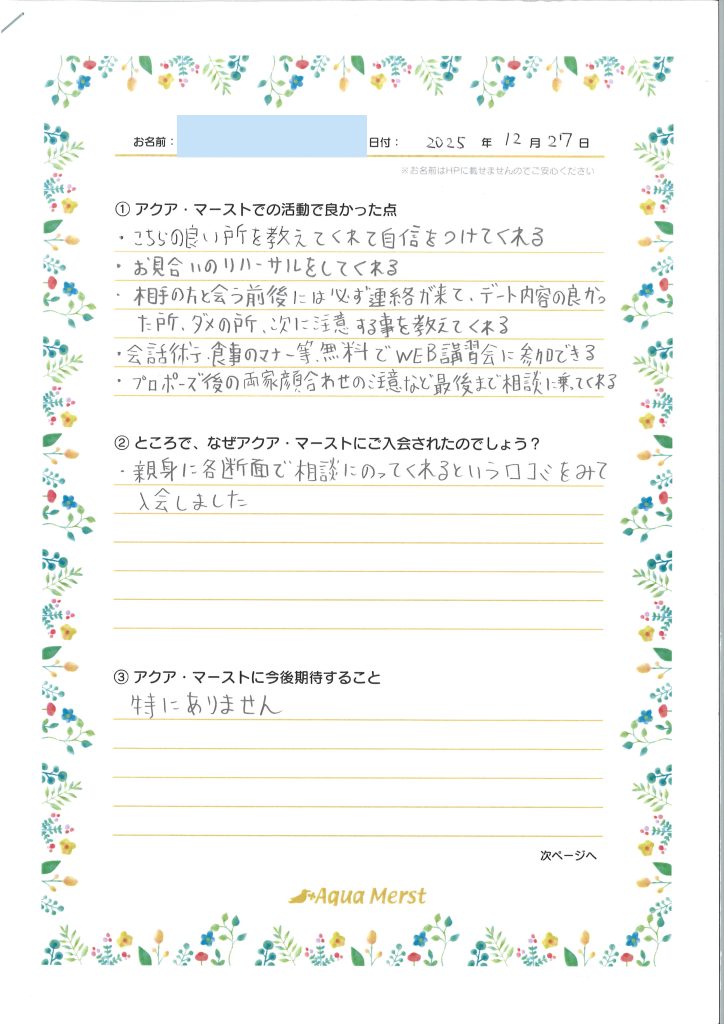 お名前：
日付： 2025 年 12 月 27 日
※お名前はHPに載せませんのでご安心ください
① アクア・マーストでの活動で良かった点
・こちらの良い所を教えてくれて自信をつけてくれる
・お見合いのリハーサルをしてくれる
・相手の方と会う前後には必ず連絡が来て、デート内容の良かっ
た所、ダメの所、次に注意する事を教えてくれる
・会話術、食事のマナー等、無料でWEB講習会に参加できる
・プロポーズ後の両家顔合わせの注意など最後まで相談に乗ってくれる
② ところで、なぜアクア・マーストにご入会されたのでしょう？
・親身に各断面で相談にのってくれるという口コミをみて
入会しました
③ アクア・マーストに今後期待すること
特にありません
次ページへ
Aqua Merst